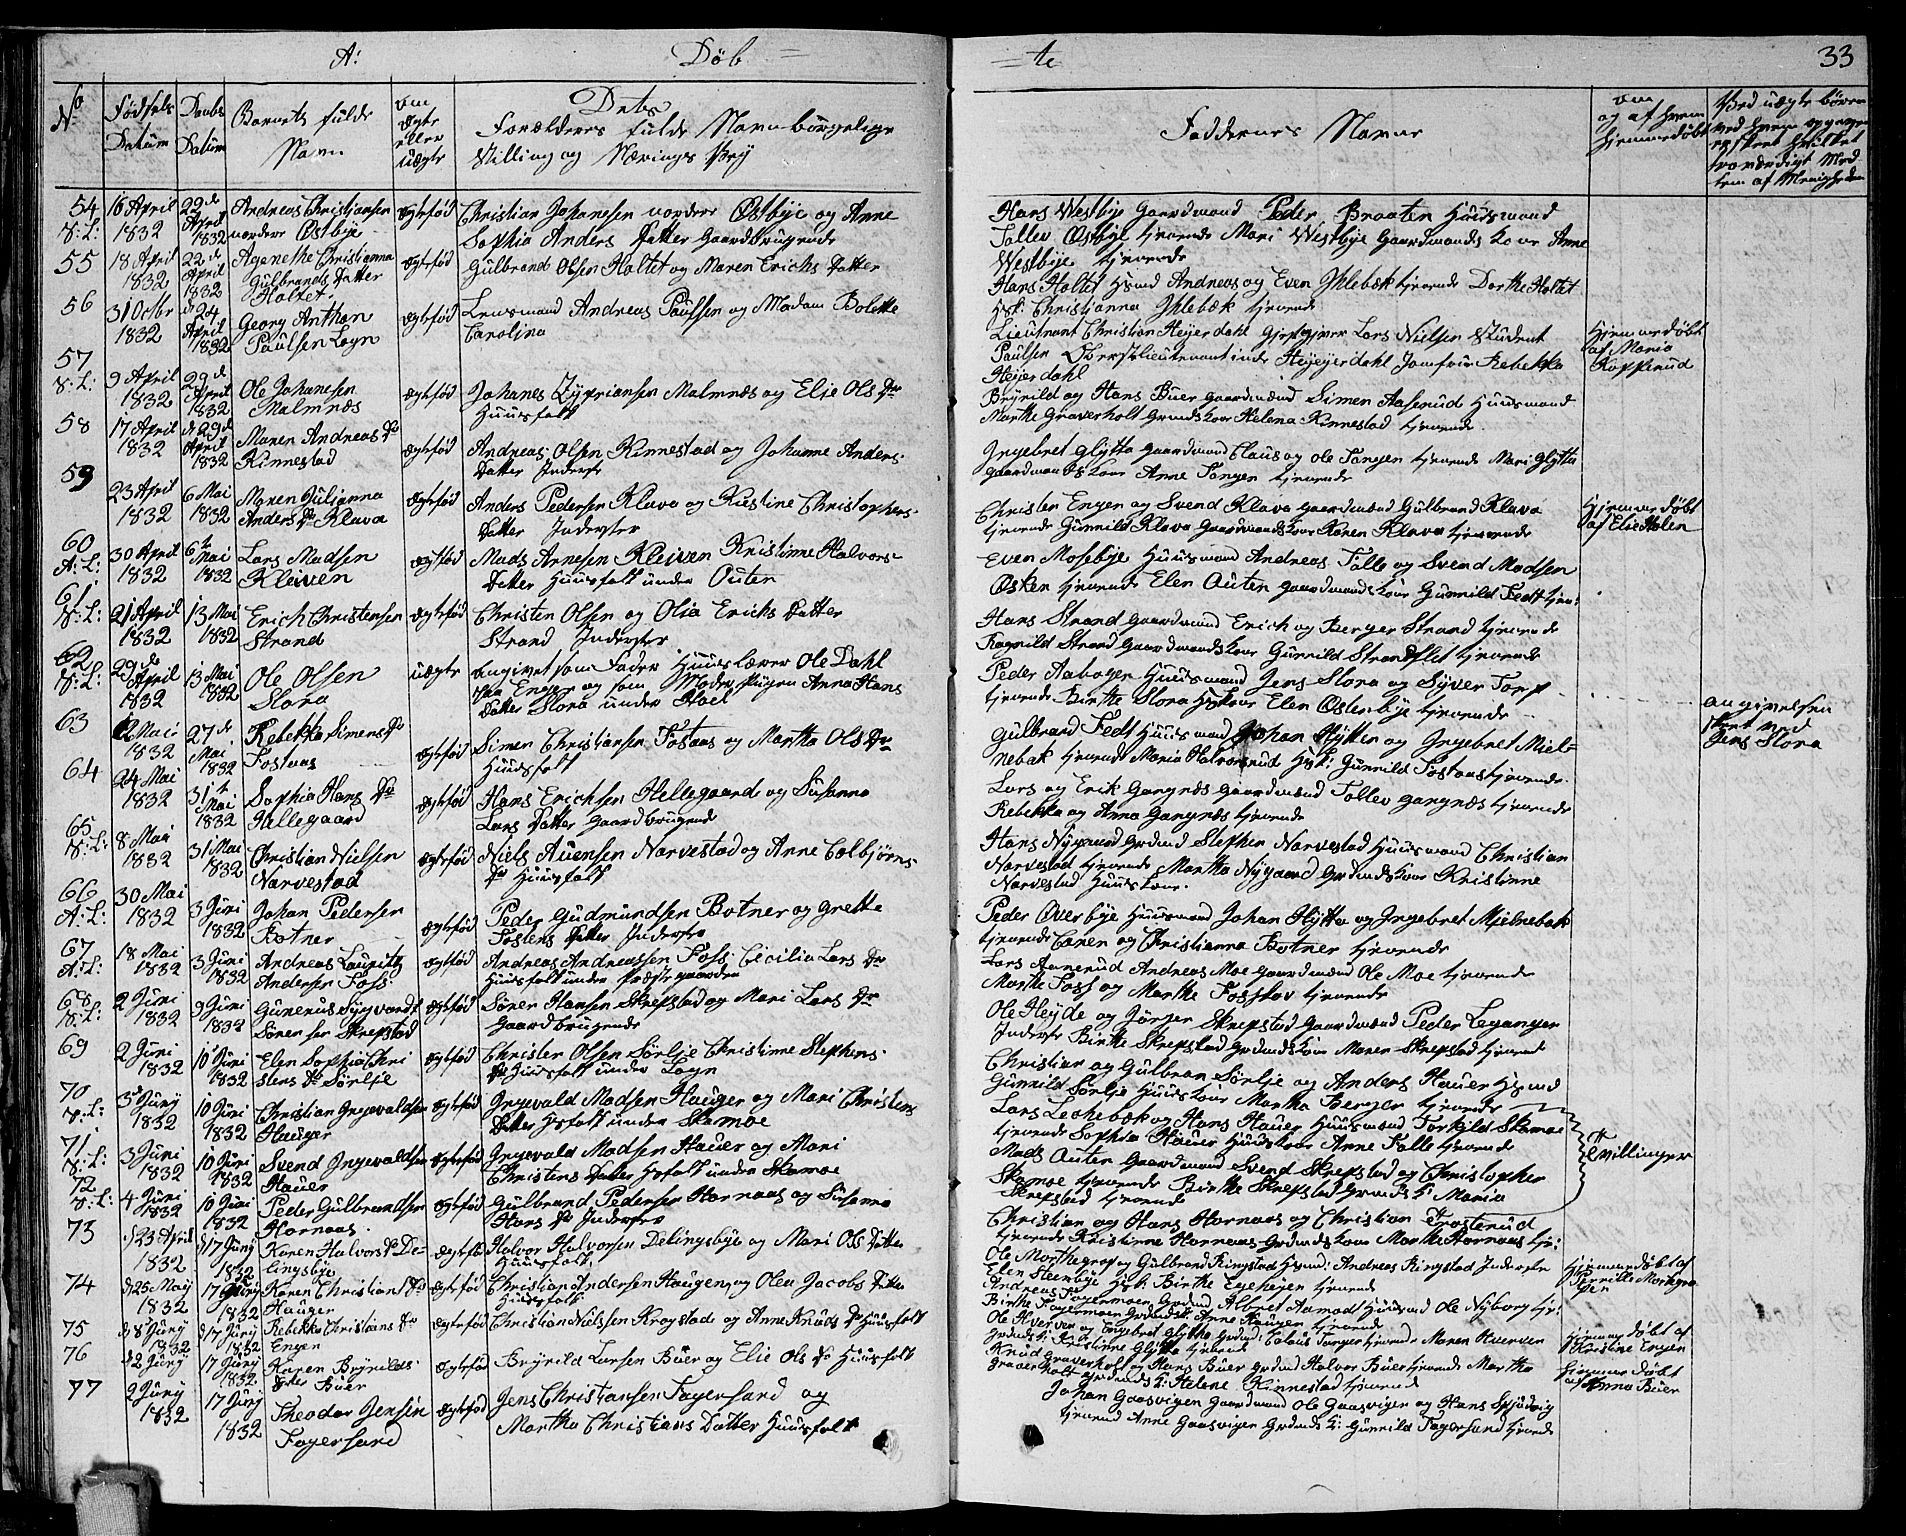 A:
Døb =
= te
33
No
Fødsels Datum
Daabs Datum
Barnets fulde Navn
om ægte eller uægte
Dets Forældres fulde Navn borgelige Stilling og Nærings Vey
Faddernes Navne
om og af hvem hjemmedøbt
54
16 April 1832
22de April 1832
Andreas Christjansen nordere Østbye
ægtefød
Christian Johannesen nordere Østbye og Anne
Sophia Anders Datter Gaardbrugende
Hans Westbye Gaardmand Peder Braaten Huusmand
Tollev Østbye tjenende Mari Westbye Gaardmands kone Anne
Westbye tjenende
55
18 April 1832
22de April 1832
Agenethe Christianna Gulbrands Datter Holtet
ægtefød
Gulbrand Olsen Holtet og Maren Erichs Datter
Hans Holtet Hsmd Andreas og Even Ihlebæk tjenende Dorthe Holtet
Hsk: Christianna Ihlebæk tjenende
56
31 Octbr 1832
d 24 April 1832
Georg Anthon Paulsen Logn
ægtefød
Lensmand Andreas Paulsen og Madam Bolette
Carolina
Lieutnant Christian Heyerdahl Gjestgiver Lars Nielsen Student
Paulsen Oberstlieutenantinde Heyerdahl Jomfru Rebekka
Heyerdahl
Hjemmedøbt af Maria Kopperud
57
9 April 1832
29de April 1832
Ole Johanesen Malmnæs
ægtefød
Johanes Zypriansen Malmnæs og Elie Ols Dr
Huusfolk
Brynild og Hans Buer Gaardmænd Simen Aaserud Huusmand
Marthe Graverholt Grmdskone Helena Kinnestad tjenende
58
17 April 1832
d 29de April 1832
Maren Andreas Dr Kinnestad
ægtefød
Andreas Olsen Kinnestad og Johanne Anders
Datter Inderste
Ingebret Glytta Gaardmand Claus og Ole Tangen tjenende Mari Glytta
Gaardmandskone Anne Tangen tjenende
59
23 April 1832
6 Mai 1832
Maren Julianna Anders Dr Klava
ægtefød
Anders Pedersen Klava og Kirstine Christophers
Datter Inderster
Christen Engen og Svend Klava Gaardmænd Gulbrand Klava
tjenende Gunnild Klava Gaardmandskone Karen Klava tjenende
Hjemmedøbt af Elie Holen
60
A: L:
30 April 1832
6te Mai 1832
Lars Madsen Kleiven
ægtefød
Mads Arnesen Kleiven Kristinne Halvors
Datter Huusfolk under Outen
Even Mosebye Huusmand Andreas Talle og Svend Madsen
Østen tjenende Elen Outen Gaardmandskone Gunnild Fedt tjen:
61
21 April 1832
13 Mai 1832
Erich Christensen Strand
ægtefød
Christen Olsen og Olia Erichs Datter
Strand Inderster
Hans Strand Gaardmand Erich og Berger Strand tjenende
Ragnild Strand Gaardmandskone Gunnild Strandflet tjenende
62
29de April 1832
13 Mai 1832
Ole Olsen Slora
uægte
Angivet som Fader Huuslærer Ole Dahl
paa Engen og som Moder Pigen Anna Hans
Datter Slora under Hoel
Peder Aabogen Huusmand Jens Slora og Syver Torp
tjenende Birthe Slora Hskone Elen Østenbye tjenende
Angivelsen skeet ved Jens Slora
63
12 Mai 1832
27de Mai 1832
Rebekka Simens Dr Fostaas
ægtefød
Simen Christiansen Fostaas og Martha Ols Dr
Huusfolk
Gulbrand Fedt Huusmand Johan Hytten og Ingebret Miel-
nebæk tjenende Maria Halvorsrud Hsk: Gunnild Fostaas tjenende
64
24 Mai 1832
31te Mai 1832
Sophia Hans Dr Hellegaard
ægtefød
Hans Erichsen Hellegaard og Susanna
Lars Datter Gaardbrugende
Lars og Erik Gangnæs Gaardmænd Tollev Gangnæs tjenende
Rebekka og Anna Gangnæs tjenende
65
8 Mai 1832
31 Mai 1832
Christian Nielsen Narvestad
ægtefød
Niels Auensen Narvestad og Anne Colbjørns
Dr Huusfolk
Hans Nygaard Grdmd Stephen Narvestad Huusmand Christian
Narvestad tjenende Martha Nygaard Grdmdskone Kristinne
Narvestad Huuskone
66
A: L:
30 Mai 1832
3 Juni 1832
Johan Pedersen Botner
ægtefød
Peder Gudmundsen Botner og Grethe
Tostens Datter Inderste
Peder Overbye Huusmand Johan Hytta og Ingebret Mielnebæk
tjenende Caren og Christianna Botner tjenende
67
A: L:
18 Mai 1832
3 Juni 1832
Andreas Lauritz Andersen Foss
ægtefød
Andreas Andreassen Foss Cicilia Lars Dr
Huusfolk under Præstegaarden
Lars Aanerud Andreas Moe Gaardmænd Ole Moe tjenende
Marthe Foss og Marthe Fosslov tjenende
68
2 Juni 1832
9 Juni 1832
Gunerius Sygvardt Sørensen Skrepstad
ægtefød
Søren Hansen Skrepstad og Mari Lars Dr
Gaardbrugende
Ole Heyde og Jørgen Skrepstad Gaardmænd Peder Levanger
Inderste Birthe Skrepstad Grdmdskone Maren Skrepstad tjenende
69
2 Juni 1832
10 Juni 1832
Elen Sophia Christens Dr Sørlje
ægtefød
Christen Olsen Sørlje Christinne Stephens
Dr Huusfolk under Logn
Christian og Gulbran Sørlje og Anders Hauer Hsmd
Gunnild Sørlje Huuskone Martha Berger tjenende
70
3 Juny 1832
10 Juni 1832
Christian Ingevaldsen Hauger
ægtefød
Ingevald Madsen Hauger og Mari Christens
Datter Hsfolk under Skamoe
Lars Lechebæk og Hans Hauer Huusmænd Torkild Skamoe
tjenende Sophia Hauer Huuskone Anne Talle tjenende
Tvillinger
71
3 Juni 1832
10 Juni 1832
Svend Ingevaldsen Hauer
ægtefød
Ingevald Madsen Hauer og Mari
Christens Datter Hsfolk under Skamoe
Mads Outen Gaardmand Svend Skrepstad og Christopher
Skamoe tjenende Birthe Skrepstad Grdmdsk: Maria
Skrepstad tjenende
72
4 Juni 1832
10 Juni 1832
Peder Gulbrandsen Hornaas
ægtefød
Gulbrand Pedersen Hornaas og Susanna
Hans Dr Inderste
Christian og Hans Hornaas og Christian Trosterud
tjenende Kristinne Hornaas Grdmdskone Marthe Hornaas tje:
73
d 23 April 1832
d 17 Juny 1832
Karen Halvors Dr Delingsbye
ægtefød
Halvor Halvorsen Delingsbye og Mari Ols Datter
Huusfolk
Ole Morthegrav og Gulbrand Ringstad Hsmd: Andreas Ringstad Inderste
Elen Steenbye Hsk Birthe Egehøien tjenende
Hjemmedøbt af Pernille Morkgraven
74
d 25 May 1832
17 Juny 1832
Karen Christians Dr Hauger
ægtefød
Christian Andersen Haugen og Olea Jacobs Datter
Huusfolk
75
d 8 Juny 1832
d 17 Juny 1832
Rebekka Christians Dr Engen
ægtefød
Christian Nielsen Krogstad og Anne Knuds Dr Huusfolk
Hjemmedøbt af Kirstine Engen
76
d 2 Juny 1832
17 Juny 1832
Karen Brynilds Dtr Buer
ægtefød
Brynild Larsen Buer og Elie Ols Dr Huusfolk
Knud Graverholt og Hans Buer Grdmd Halvor Buer tjenende Martha
Graverholt Grdmdsk: Helene Kinnestad tjenende
Hjemmedøbt af Anna Buer
77
2 Juny 1832
17 Juny 1832
Theodor Jensen Fagersand
ægtefød
Jens Christiansen Fagersand og
Martha Christians Datter Huusfolk
Johan Gaasvigen Gaardmand Ole Gaasvigen og Hans Spydvig
tjenend Anne Gaasvigen Grdmdsk: Gunnild Fagersand tjenende